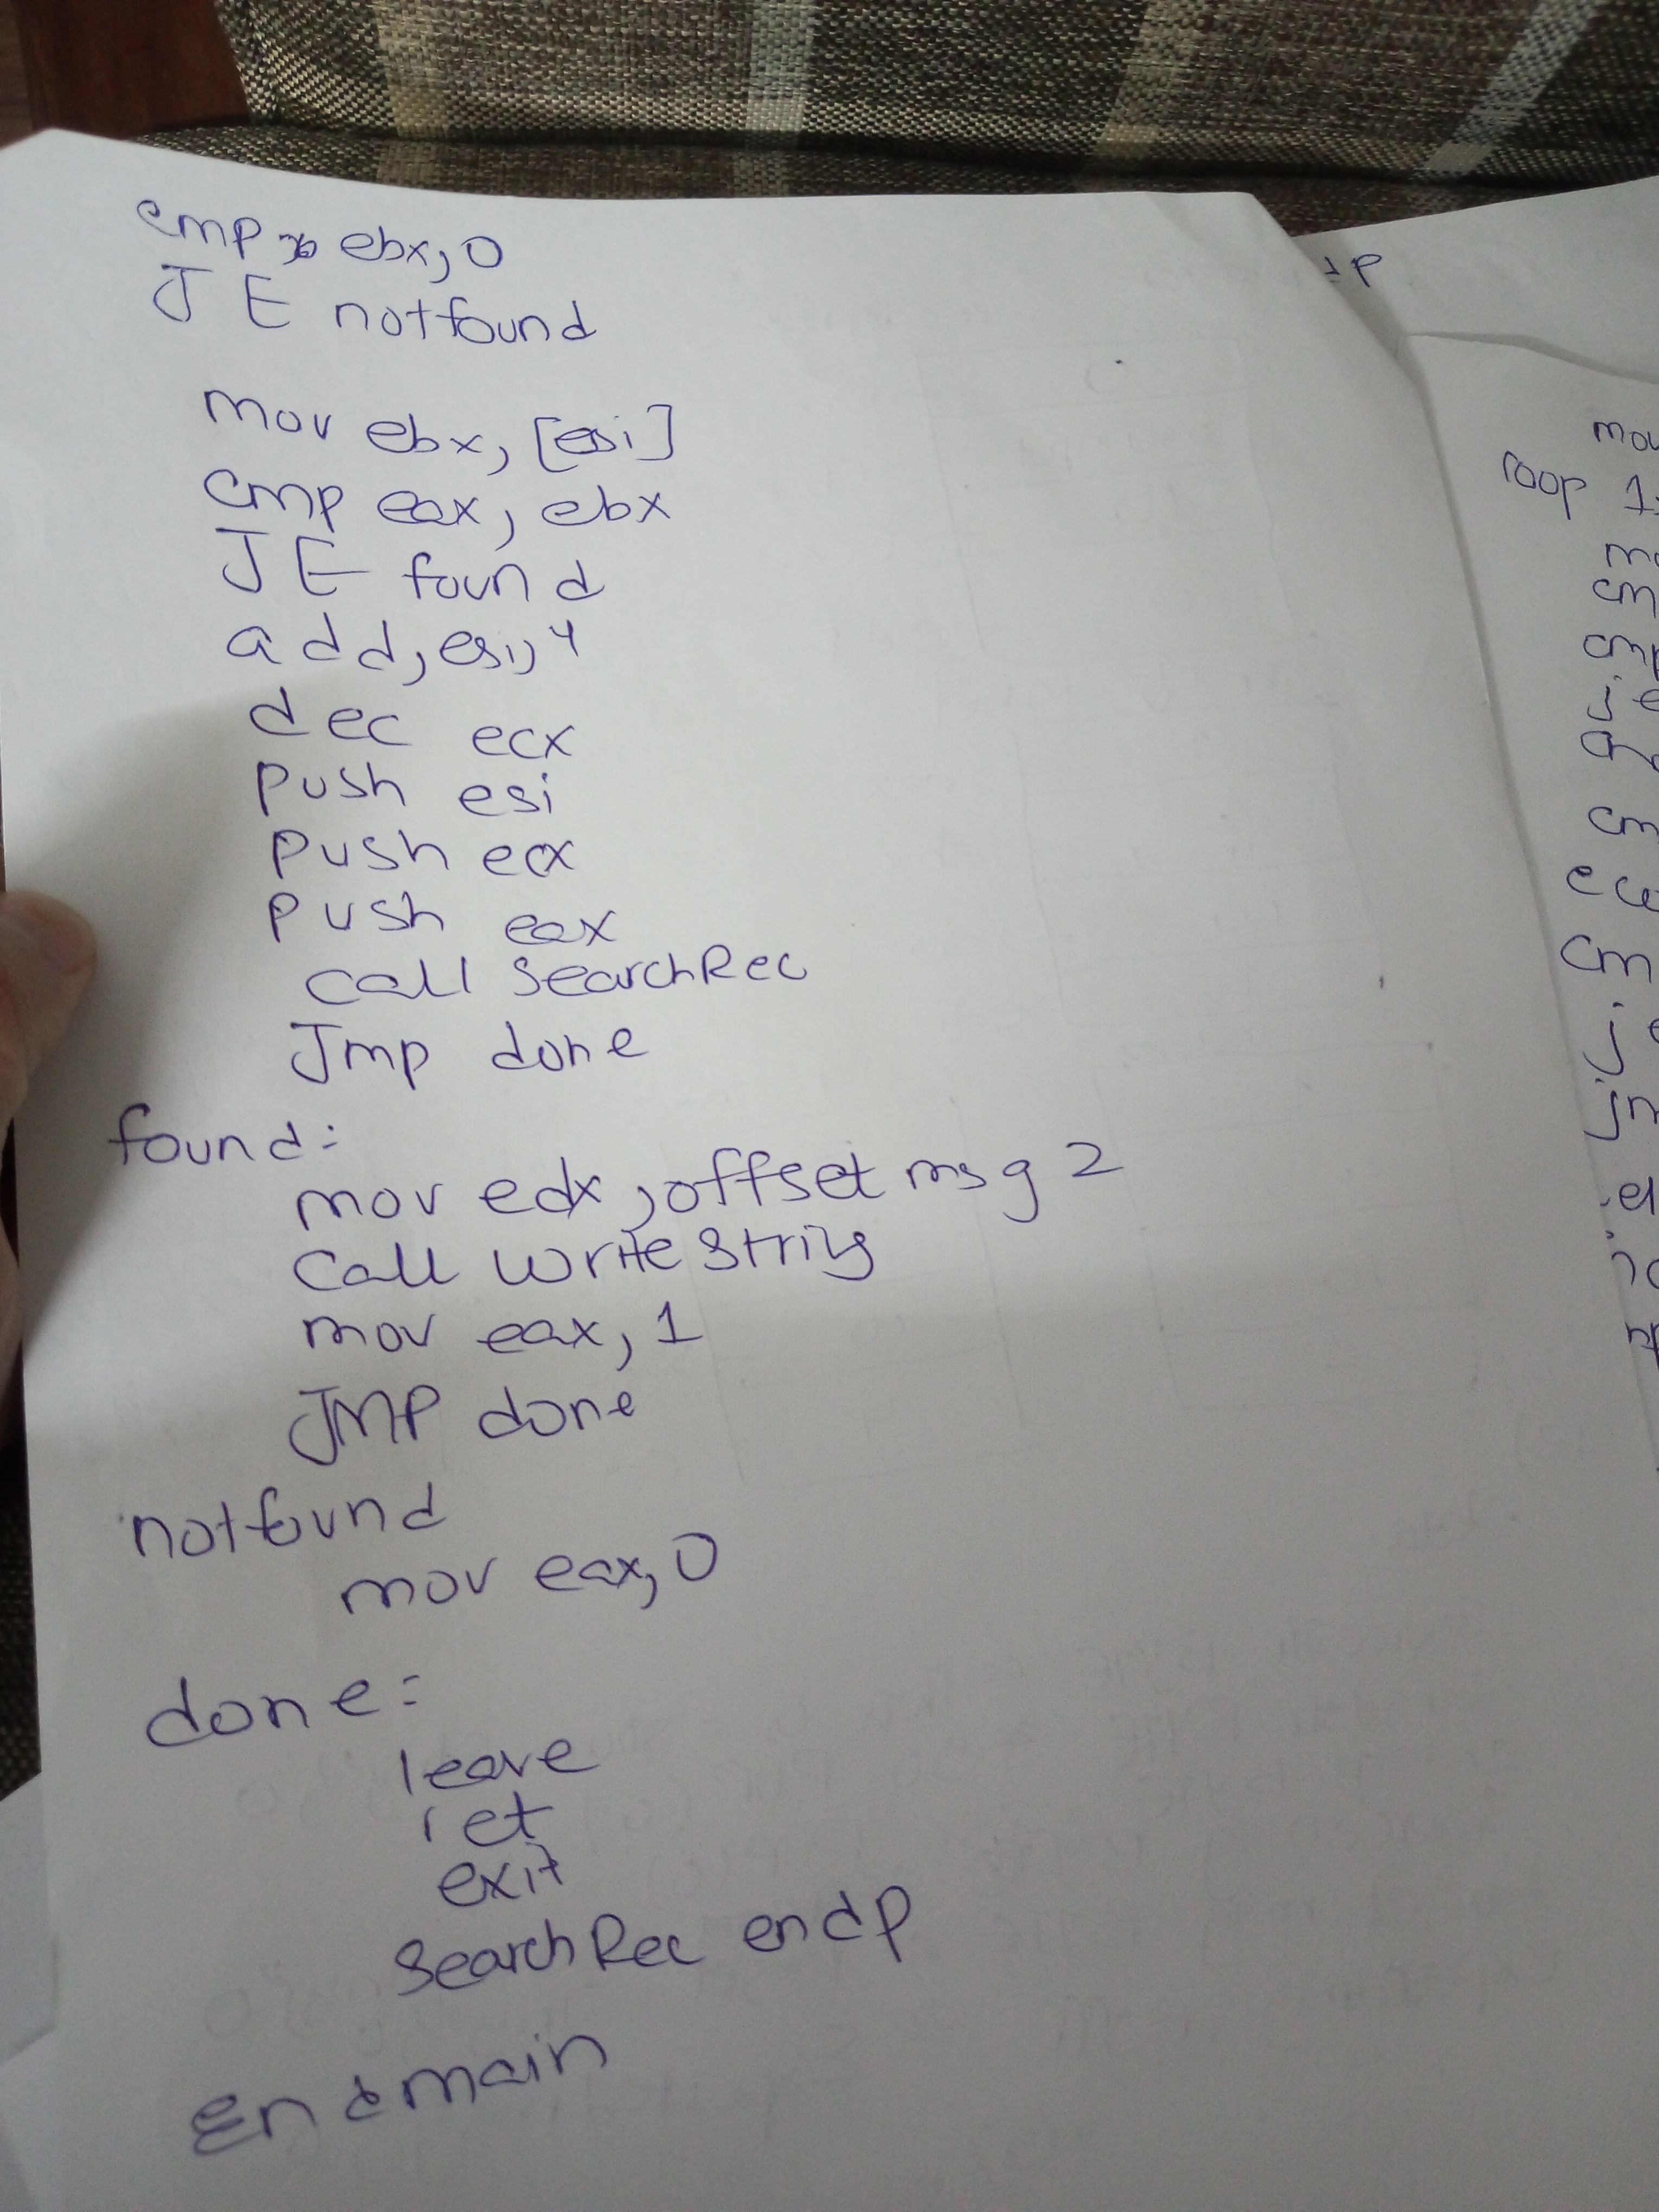 cmp ebx, 0
JE notfound
mov ebx, [esi]
cmp eax, ebx
JE found
add, esi, 4
dec ecx
push esi
push ecx
push eax
call SearchRec
Jmp done
found:
mov edx, offset msg 2
call write string
mov eax, 1
JMP done
notfound
mov eax, 0
done:
leave
ret
exit
SearchRec endp
End main
mov
loop 1: